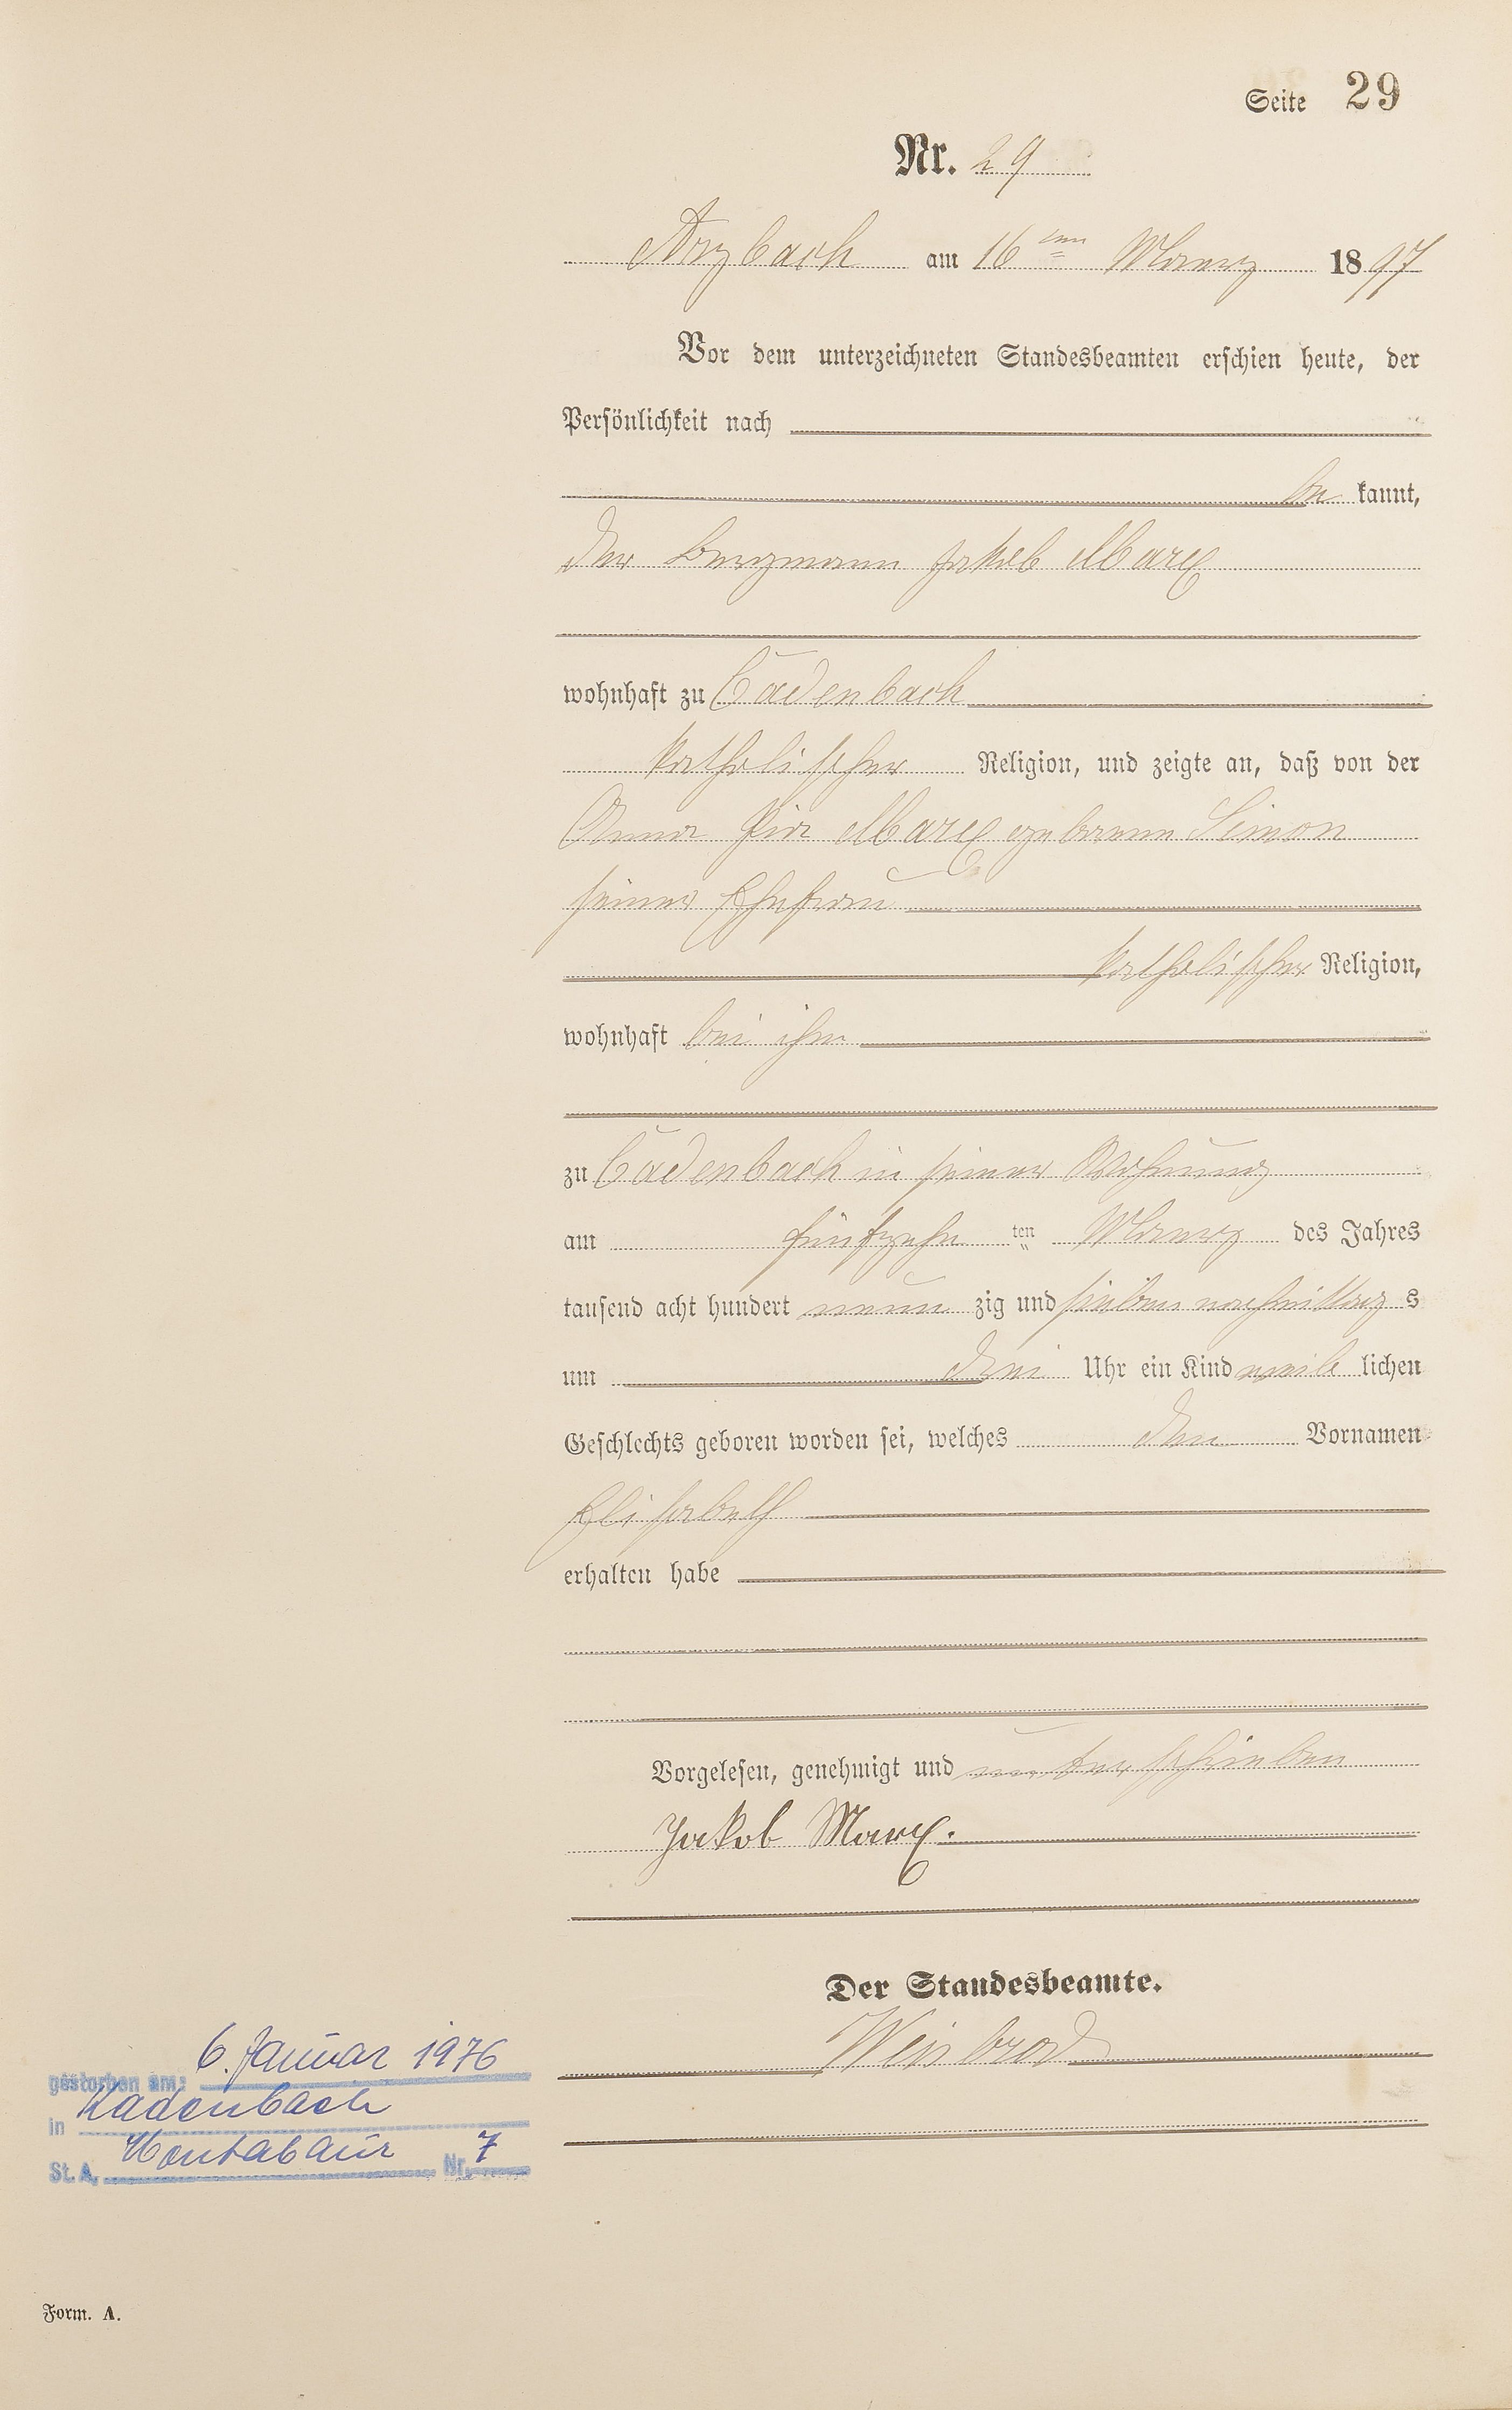 Seite 29
Nr. 29
Arzbach am 16ten Maerz 1897
Vor dem unterzeichneten Standesbeamten erschien heute, der
Persönlichkeit nach
be kannt,
der Bergmann Jakob Marx
wohnhaft zu Cadenbach
katholischer Religion, und zeigte an, daß von der
Anna Marx geborene Simon
seiner Ehefrau
katholischer Religion,
wohnhaft bei ihm
zu Cadenbach in seiner Wohnung
am fünfzehn ten Maerz des Jahres
tausend acht hundert neun zig und sieben nachmittag s
um drei Uhr ein Kind weib lichen
Geschlechts geboren worden sei, welches den Vornamen
Elisabeth
erhalten habe
Vorgelesen, genehmigt und unterschrieben
Jakob Marx.
Der Standesbeamte.
Weisbrod
gestorben am: 6. Januar 1976
in Kadenbach
St. A. Montabaur Nr. 7
Form. A.